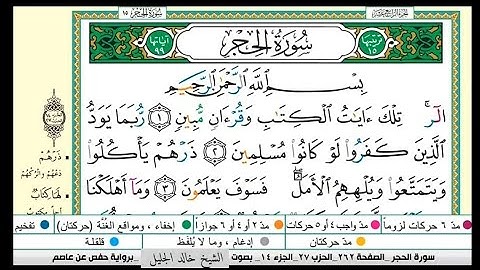 سُورَةُ الحِجْرِ ١٥
الجزء الرابع عشر
آياتها ٩٩
سُورَةُ الحِجْرِ
ترتيبها ١٥
بِسْمِ ٱللَّهِ ٱلرَّحْمَٰنِ ٱلرَّحِيمِ
الٓرۚ تِلْكَ ءَايَٰتُ ٱلْكِتَٰبِ وَقُرْءَانٍ مُّبِينٍ ١ رُّبَمَا يَوَدُّ
ٱلَّذِينَ كَفَرُوا۟ لَوْ كَانُوا۟ مُسْلِمِينَ ٢ ذَرْهُمْ يَأْكُلُوا۟
وَيَتَمَتَّعُوا۟ وَيُلْهِهِمُ ٱلْأَمَلُ ۖ فَسَوْفَ يَعْلَمُونَ ٣ وَمَآ أَهْلَكْنَا
ذَرْهُم
دَعْهُم واتْرُكْهُم
مد ٦ حركات لزوماً مد واجب ٤ أو ٥ حركات مد ٢ أو ٤ أو ٦ جوازاً إخفاء، ومواقع الغُنَّة (حركتان) تفخيم
مد حركتان إدغام، وما لا يُلفَظ قلقلة
سورة الحجر - الصفحة ٢٦٢ - الحزب ٢٧ - الجزء ١٤ - بصوت الشيخ خالد الجليل - برواية حفص عن عاصم